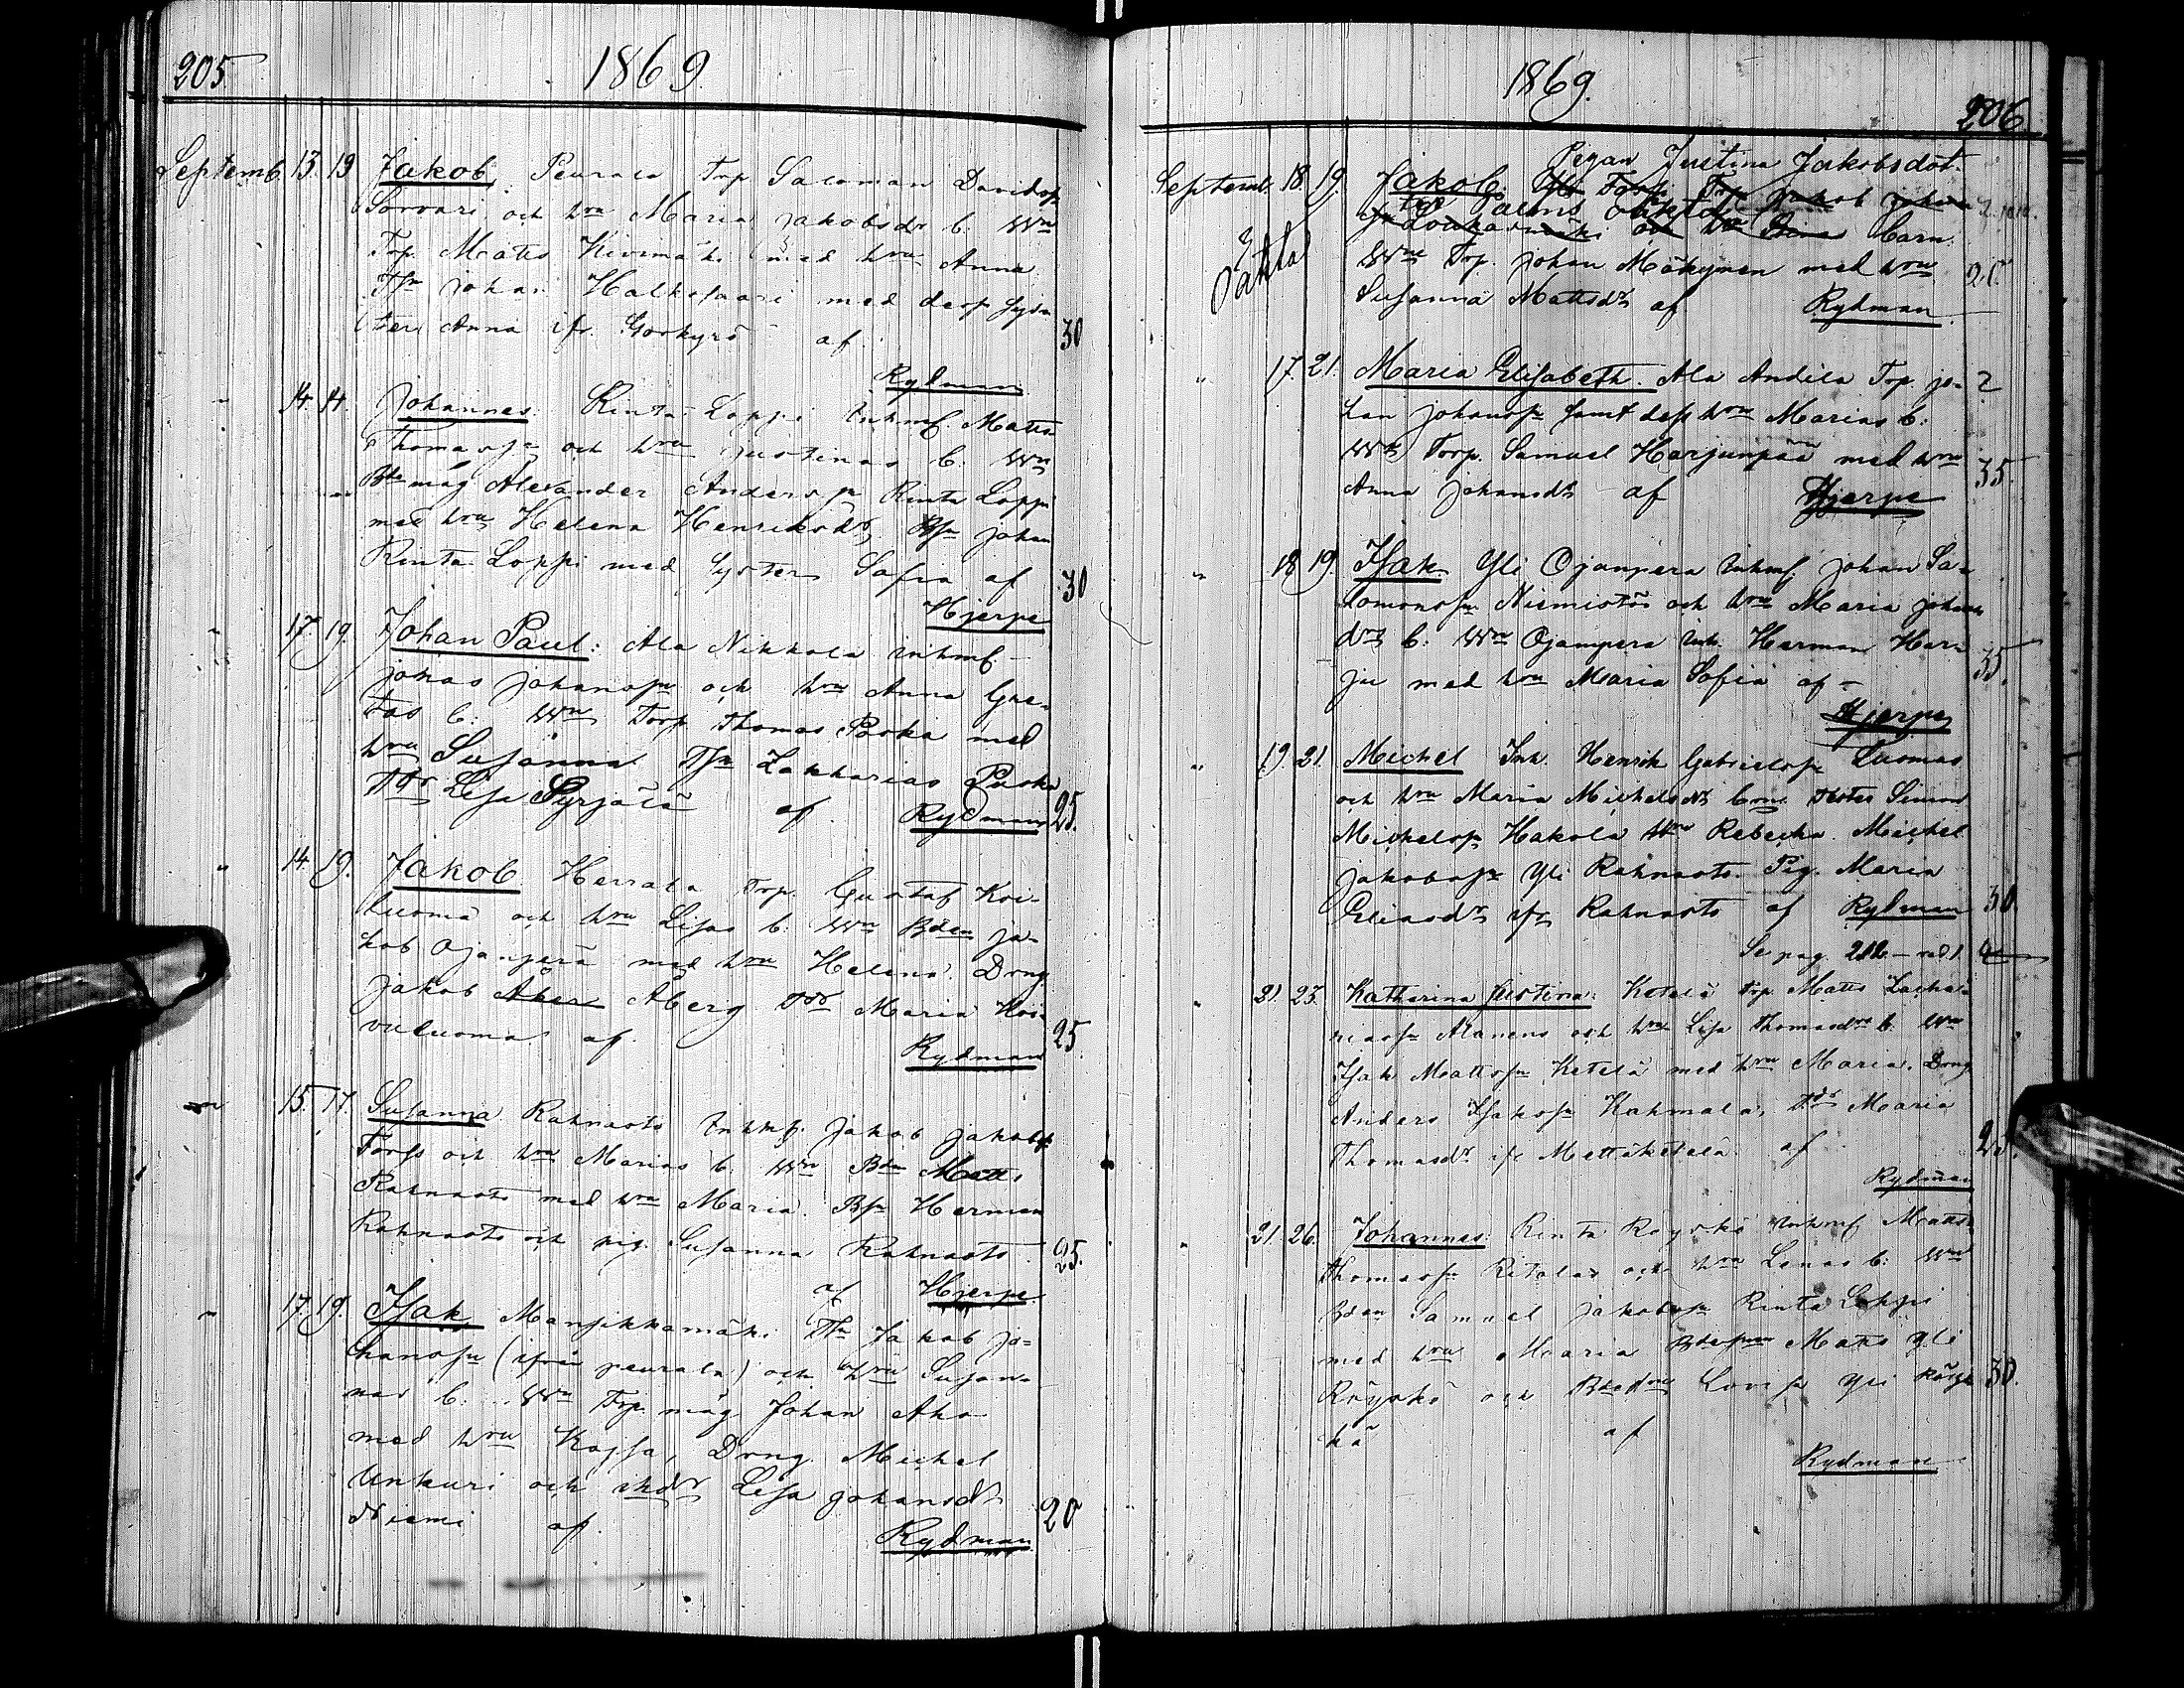 205. 1869.
Septemb. 13. 19 Jakob. Peurala Trp Saloman Davidsn
Sorvari och hru Maria Jakobsdr b. Wrn
Trp. Matts Kivimäki med hru Anna
Tsn Johan Halkosaari med dess Sys-
ter Anna ifr. Storkyro af 30
Rydman
" 14. 14. Johannes. Rinta Loppi Inhmf. Matts
Thomassn och hru Justinas b. Wrn
Bde måg Alexander Anderssn Rinta Loppi
med hru Helena Henriksdr, Bsn Johan
Rinta Loppi med Syster Sofia af 30
Hjerpe
" 17. 19. Johan Paul: Ala Nikkola Inhmf.
Johas Johanssn och hru Anna Gre-
tas b: Wrn Torp. Thomas Paska med
hru Susanna. Tsn Zakharias Paska
Tdr Lisa Syrjälä af. Rydman 25.
" 14. 19. Jakob Herrala Trp. Gustaf Koi-
luoma och hru Lisas b. Wrn Bden Ja-
kob Ojanperä med hru Helena. Drng
Jakob Åberg Tdr Maria Koi-
vuluoma af. 25
Rydman
" 15. 17. Susanna Rahnasto Inhmf. Jakob Jakobss
Forss och hru Marias b. Wrn Bdn Matts
Rahnasto med hru Maria. Bsn Herman
Rahnasto och pig. Susanna Rahnasto 25.
af Hjerpe
" 17. 19. Isak Mansikkamäki Tsn Jakob Jo-
hanssn (ifrån peurala) och hru Susan-
nas b: Wrn Trp. måg Johan Aho
med hru Kajsa, Drng. Michel
Unkuri och Lisa Johansdr
Niemi af. 20
Rydman
1869. 206
Pegan Justina Jakobsdot.
Septemb. 18. 19. Jakob. Trp Jakob Johan
barn.
Wrn Trp. Johan Mäkynen med hru 20.
Susanna Mattsdr af Rydman
" 17. 21. Maria Elisabeth. Ala Andila Trp. Jo- 2
han Johanssn samt dess hru Marias b:
Wrn Torp. Samuel Harjunpää med hru
Anna Johansdr af Hjerpe 35.
" 18 19. Isak. Yli Ojanpera Inhmf. Johan Sa-
lomonssn Niemistös och hru Maria Johans
drs b: Wrn Ojanpera Inh. Herman Har-
ju med hru Maria Sofia af 35.
Hjerpe
" 19 21. Michel Inh. Henrik Gabrielssn Luomas
och hru Maria Michelsdr Simon
Michelssn Hakola hru Rebecka. Michel
Jakobssn Yli Rahnasto. Pig. Maria
Eliasdr ifr Rahnasto af Rydman 30.
Se pag. 212 – rad 1.
" 21. 23. Katharina Justina: Ketola Trp. Matts Zacha-
riassn Alanens och hru Lisa Thomasdrs b. Wrn
Isak Mattssn Ketola med hru Maria. Drng
Anders Isakssn Kahmala, Tdr Maria
Thomasdr ifr Mettäketola af 25.
Rydman
" 21. 26. Johannes: Rinta Röyskö Inhmf Matts
Thomassn Ritolas och hru Lenas b: Wrn
Bden Samuel Jakobssn Rinta Loppi
med hru Maria Bdessn Matts Yli
Röyskö och Bdedr Lovisa Yli Röys- 30.
kö af
Rydman